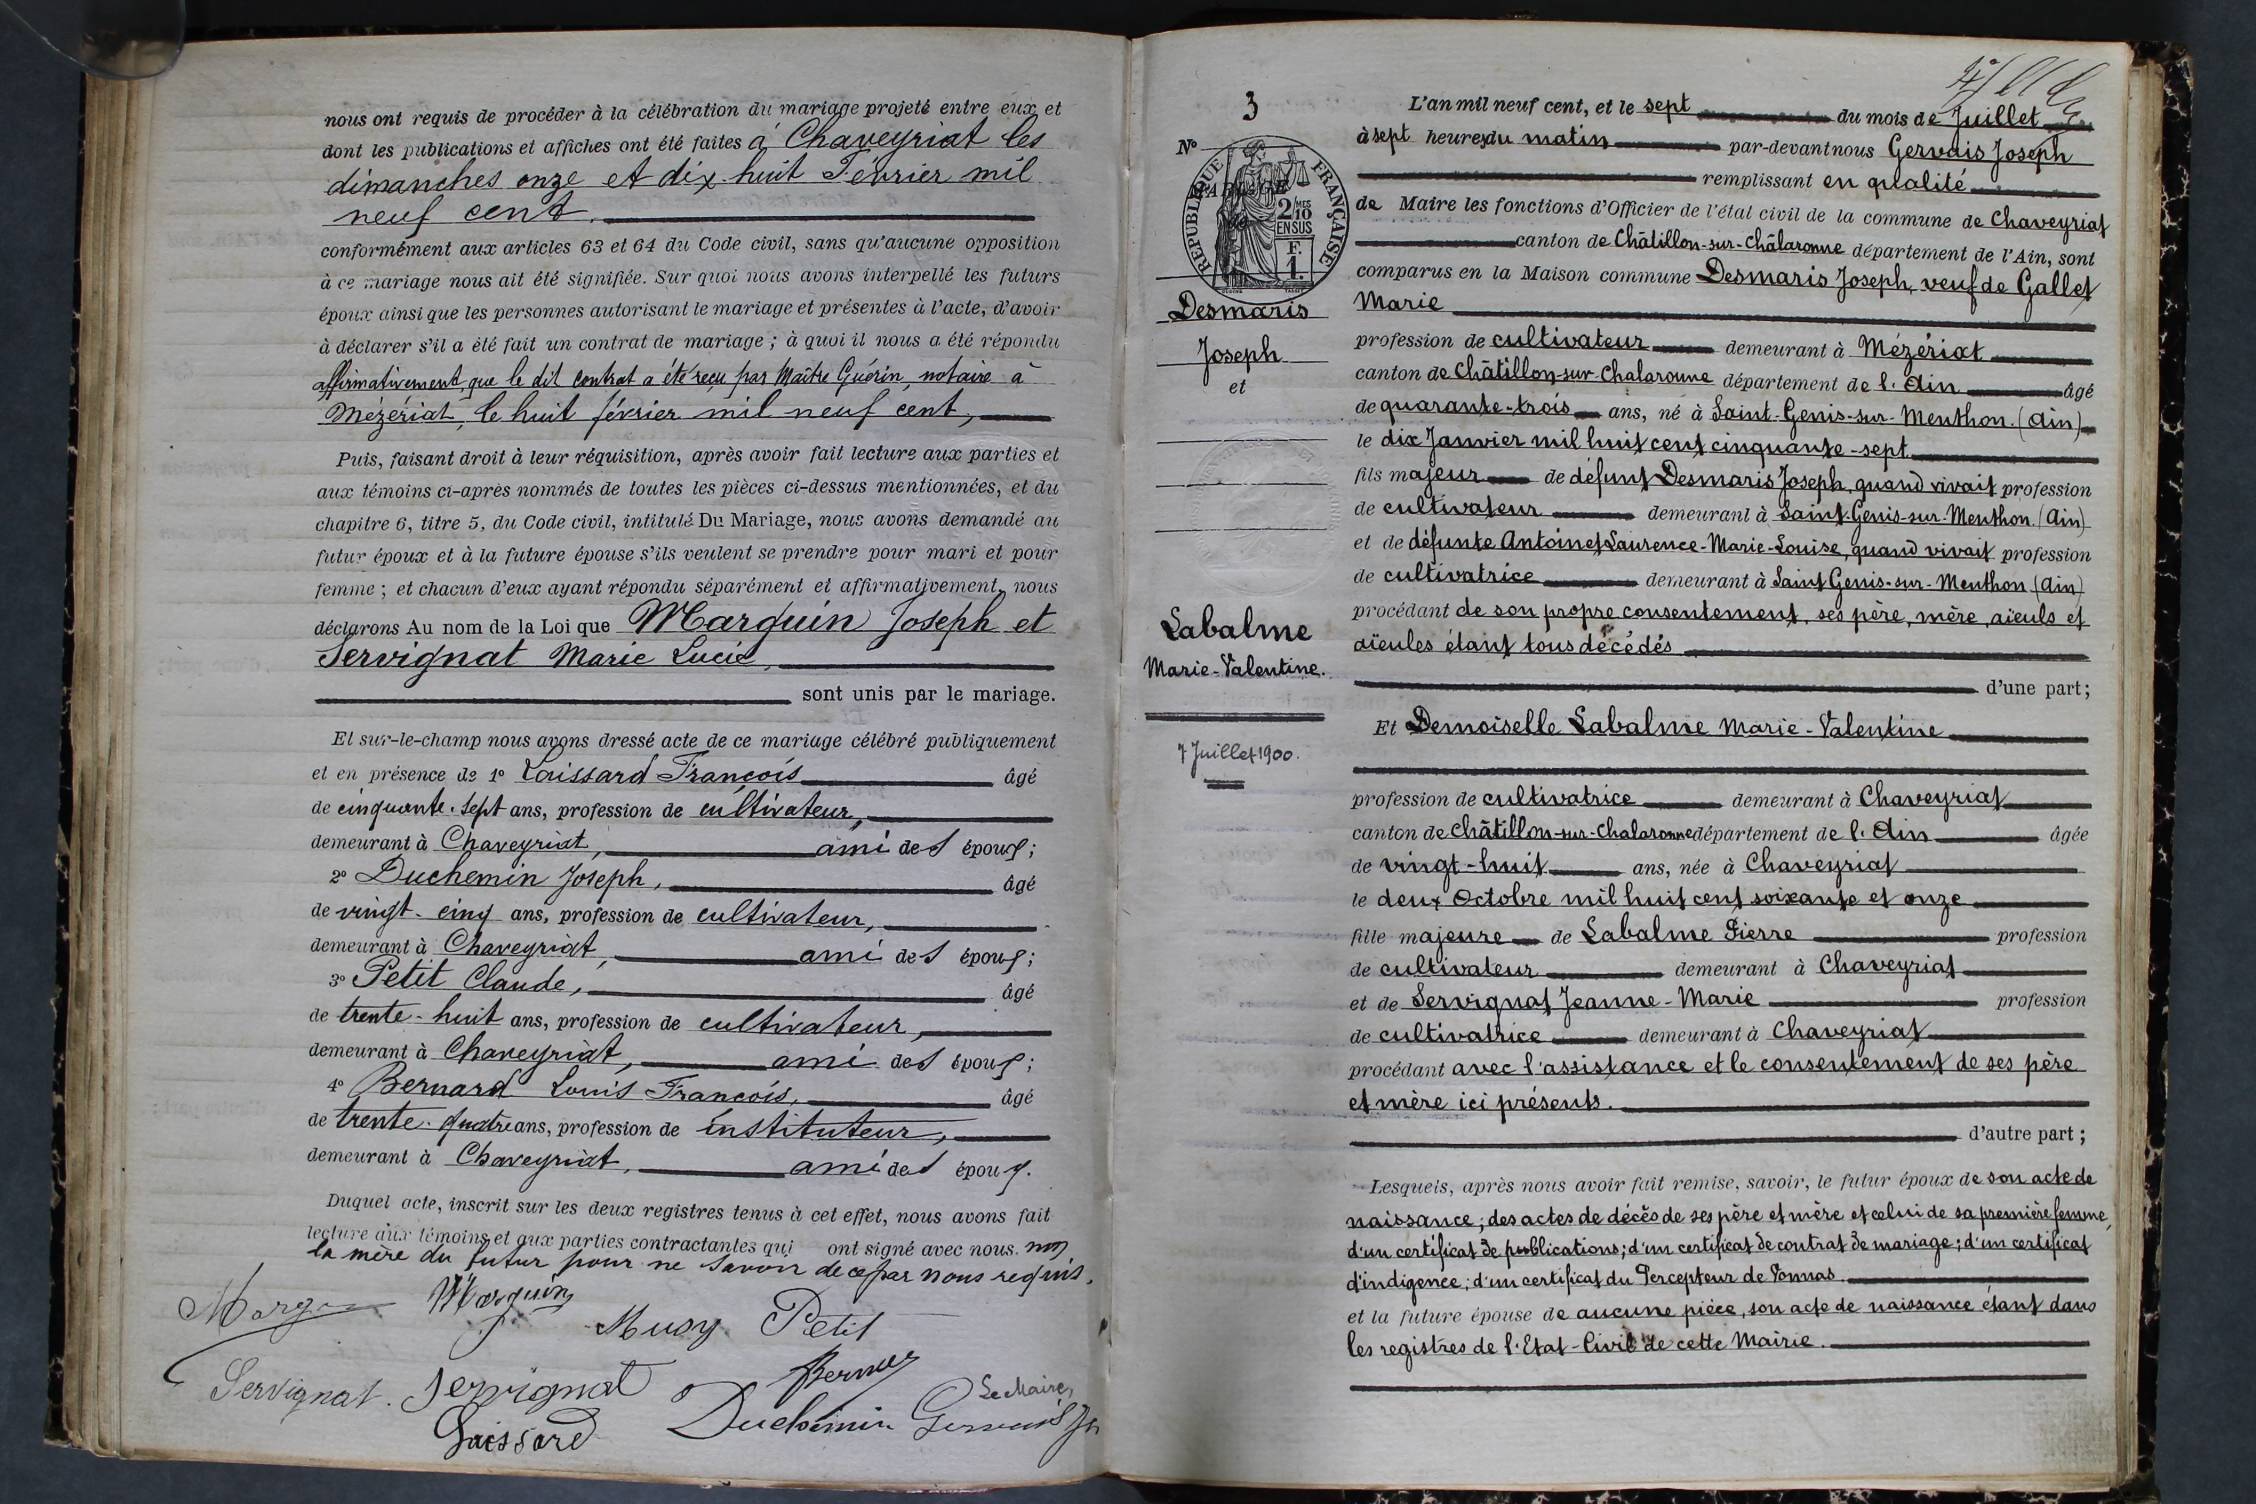 nous ont requis de procéder à la célébration du mariage projeté entre eux et
dont les publications et affiches ont été faites à Chaveyriat les
dimanches onze et dix-huit Février mil
neuf cent.
conformément aux articles 63 et 64 du Code civil, sans qu'aucune opposition
à ce mariage nous ait été signifiée. Sur quoi nous avons interpellé les futurs
époux ainsi que les personnes autorisant le mariage et présentes à l'acte, d'avoir
à déclarer s'il a été fait un contrat de mariage ; à quoi il nous a été répondu
affirmativement, que le dit contrat a été reçu par Maître Guérin, notaire à
Mézériat, le huit février mil neuf cent,
Puis, faisant droit à leur réquisition, après avoir fait lecture aux parties et
aux témoins ci-après nommés de toutes les pièces ci-dessus mentionnées, et du
chapitre 6, titre 5, du Code civil, intitulé Du Mariage, nous avons demandé au
futur époux et à la future épouse s'ils veulent se prendre pour mari et pour
femme ; et chacun d'eux ayant répondu séparément et affirmativement, nous
déclarons Au nom de la Loi que Marguin Joseph et
Servignat Marie Lucie,
sont unis par le mariage.
Et sur-le-champ nous avons dressé acte de ce mariage célébré publiquement
et en présence de 1° Loissard François âgé
de cinquante-sept ans, profession de cultivateur,
demeurant à Chaveyriat, ami des époux ;
2° Duchemin Joseph, âgé
de vingt-cinq ans, profession de cultivateur,
demeurant à Chaveyriat, ami des époux ;
3° Petit Claude, âgé
de trente-huit ans, profession de cultivateur,
demeurant à Chaveyriat, ami des époux ;
4° Bernard Louis François, âgé
de trente-quatre ans, profession de instituteur,
demeurant à Chaveyriat, ami des époux.
Duquel acte, inscrit sur les deux registres tenus à cet effet, nous avons fait
lecture aux témoins et aux parties contractantes qui ont signé avec nous. non
la mère du futur pour ne savoir de ce par nous requis.
Marguin
Muoy Petit
Servignat. Servignat
Le Maire,
Duchemin Gervais Jh
N° 3
RÉPUBLIQUE FRANÇAISE
2/10 MES EN SUS
F. 1.
Desmaris
Joseph
et
Labalme
Marie-Valentine.
7 Juillet 1900.
L'an mil neuf cent, et le sept du mois de Juillet
à sept heures du matin par-devant nous Gervais Joseph
remplissant en qualité
de Maire les fonctions d'Officier de l'état civil de la commune de Chaveyriat
canton de Châtillon-sur-Châlaronne département de l'Ain, sont
comparus en la Maison commune Desmaris Joseph, veuf de Gallet
Marie
profession de cultivateur demeurant à Mézériat
canton de Châtillon-sur-Chalaronne département de l'Ain âgé
de quarante-trois ans, né à Saint-Genis-sur-Menthon. (Ain)
le dix Janvier mil huit cent cinquante-sept
fils majeur de défunt Desmaris Joseph, quand vivait profession
de cultivateur demeurant à Saint-Genis-sur-Menthon. (Ain)
et de défunte Antoinet Laurence-Marie-Louise, quand vivait profession
de cultivatrice demeurant à Saint Genis-sur-Menthon (Ain)
procédant de son propre consentement, ses père, mère, aïeuls et
aïeules étant tous décédés
d'une part;
Et Demoiselle Labalme Marie-Valentine
profession de cultivatrice demeurant à Chaveyriat
canton de Châtillon-sur-Chalaronne département de l'Ain âgée
de vingt-huit ans, née à Chaveyriat
le deux Octobre mil huit cent soixante et onze
fille majeure de Labalme Pierre profession
de cultivateur demeurant à Chaveyriat
et de Servignat Jeanne-Marie profession
de cultivatrice demeurant à Chaveyriat
procédant avec l'assistance et le consentement de ses père
et mère ici présents.
d'autre part;
Lesquels, après nous avoir fait remise, savoir, le futur époux de son acte de
naissance; des actes de décès de ses père et mère et celui de sa première femme,
d'un certificat de publications; d'un certificat de contrat de mariage; d'un certificat
d'indigence; d'un certificat du Percepteur de Vonnas.
et la future épouse de aucune pièce, son acte de naissance étant dans
les registres de l'Etat-Civil de cette Mairie.